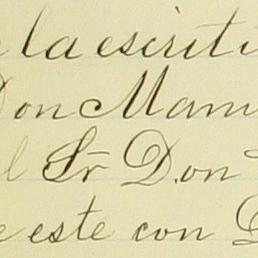 la escrit
Don Manu
l Sr Don
e este con D